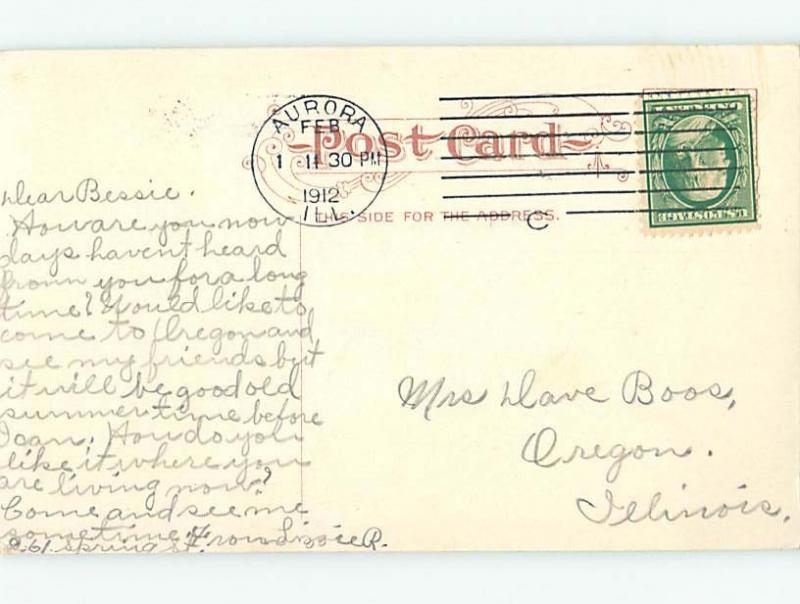 AURORA
FEB
1 11 30 PM
1912
ILL.
Post Card
THIS SIDE FOR THE ADDRESS.
C
U.S. POSTAGE
Dear Bessie.
How are you now
days havent heard
from you for a long
time? Would like to
come to Oregon and
see my friends but
it will be good old
summer time before
I can. How do you
like it where you
are living now?
Come and see me
sometime From R.
61 Spring St.
Mrs Dave Boos,
Oregon.
Illinois.